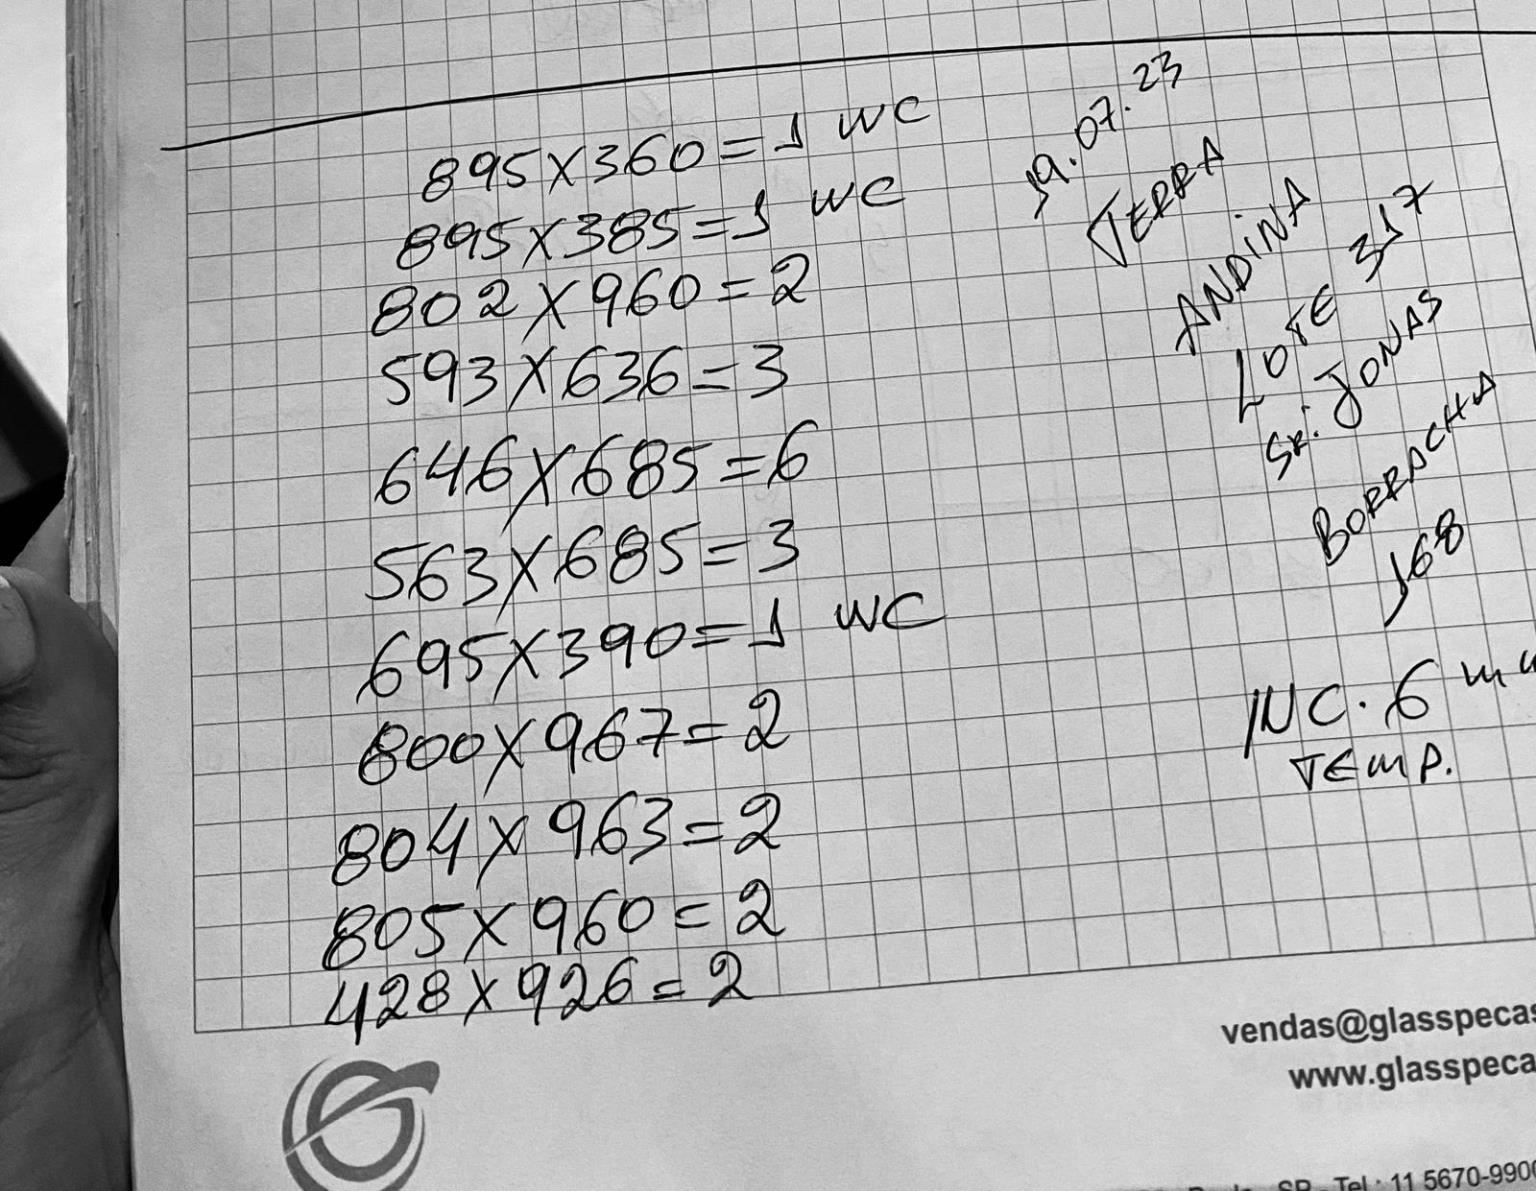 895X360=1 WC
895X385=1 WC
802X960=2
593X636=3
646X685=6
563X685=3
695X390=1 WC
800X967=2
804X963=2
805X960=2
428X926=2
19.07.23
TERRA
ANDiNA
LOTE 317
SR. JONAS
BORRACHA
168
INC. 6 mm
TEMP.
vendas@glasspecas
www.glasspeca
SP - Tel.: 11 5670-9900